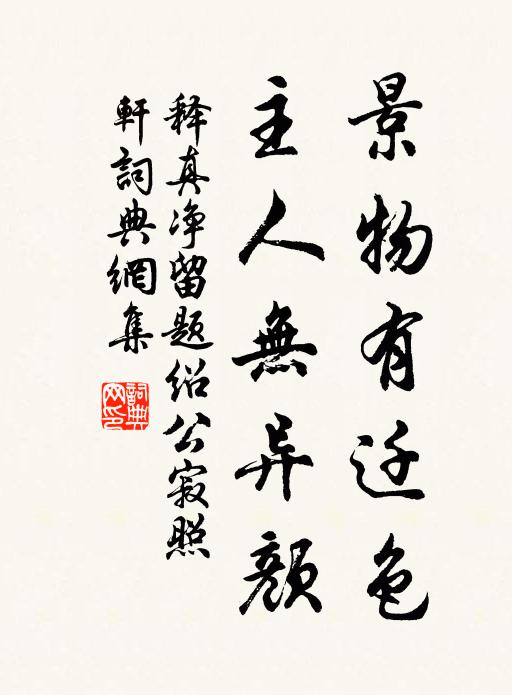 景物有迁色
主人無异顔
释真净留题绍公寂照
軒詞典網集
詞典網印